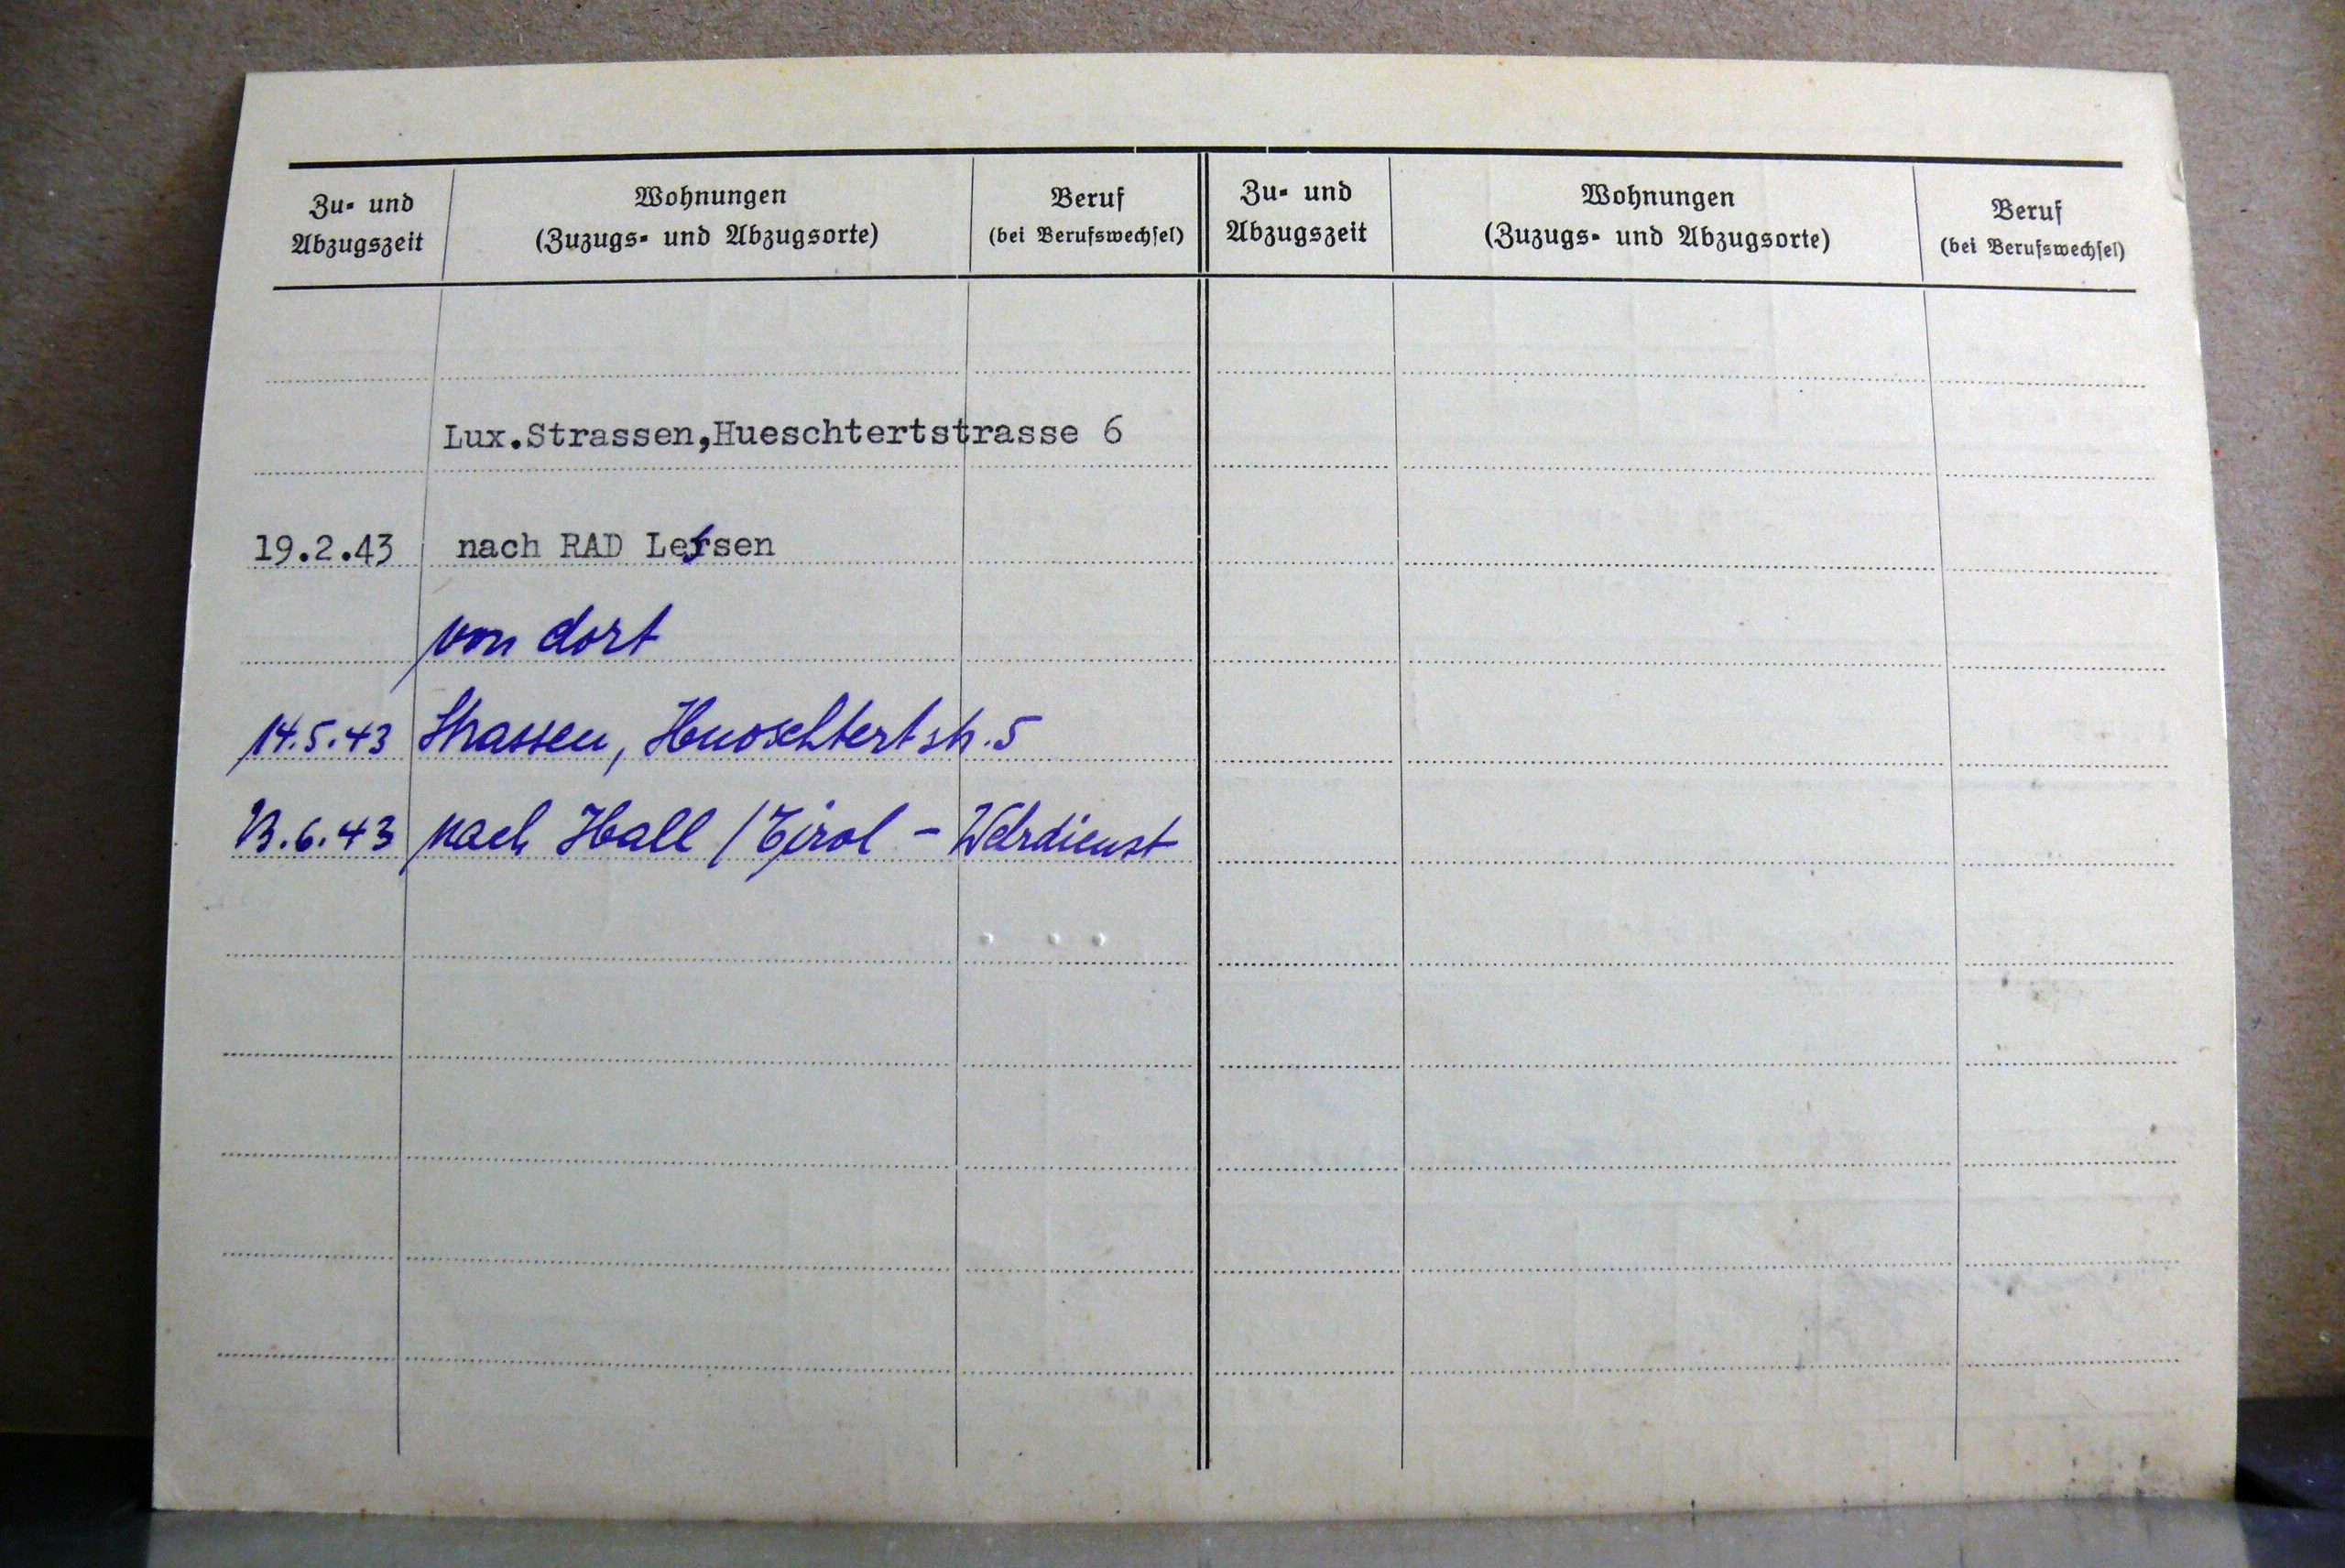 Zu- und
Abzugszeit
Wohnungen
(Zuzugs- und Abzugsorte)
Beruf
(bei Berufswechsel)
Zu- und
Abzugszeit
Wohnungen
(Zuzugs- und Abzugsorte)
Beruf
(bei Berufswechsel)
Lux.Strassen,Hueschtertstrasse 6
19.2.43 nach RAD Lessen
von dort
14.5.43 Strassen, Huoschtertstr. 5
13.6.43 nach Hall / Tirol - Wehrdienst